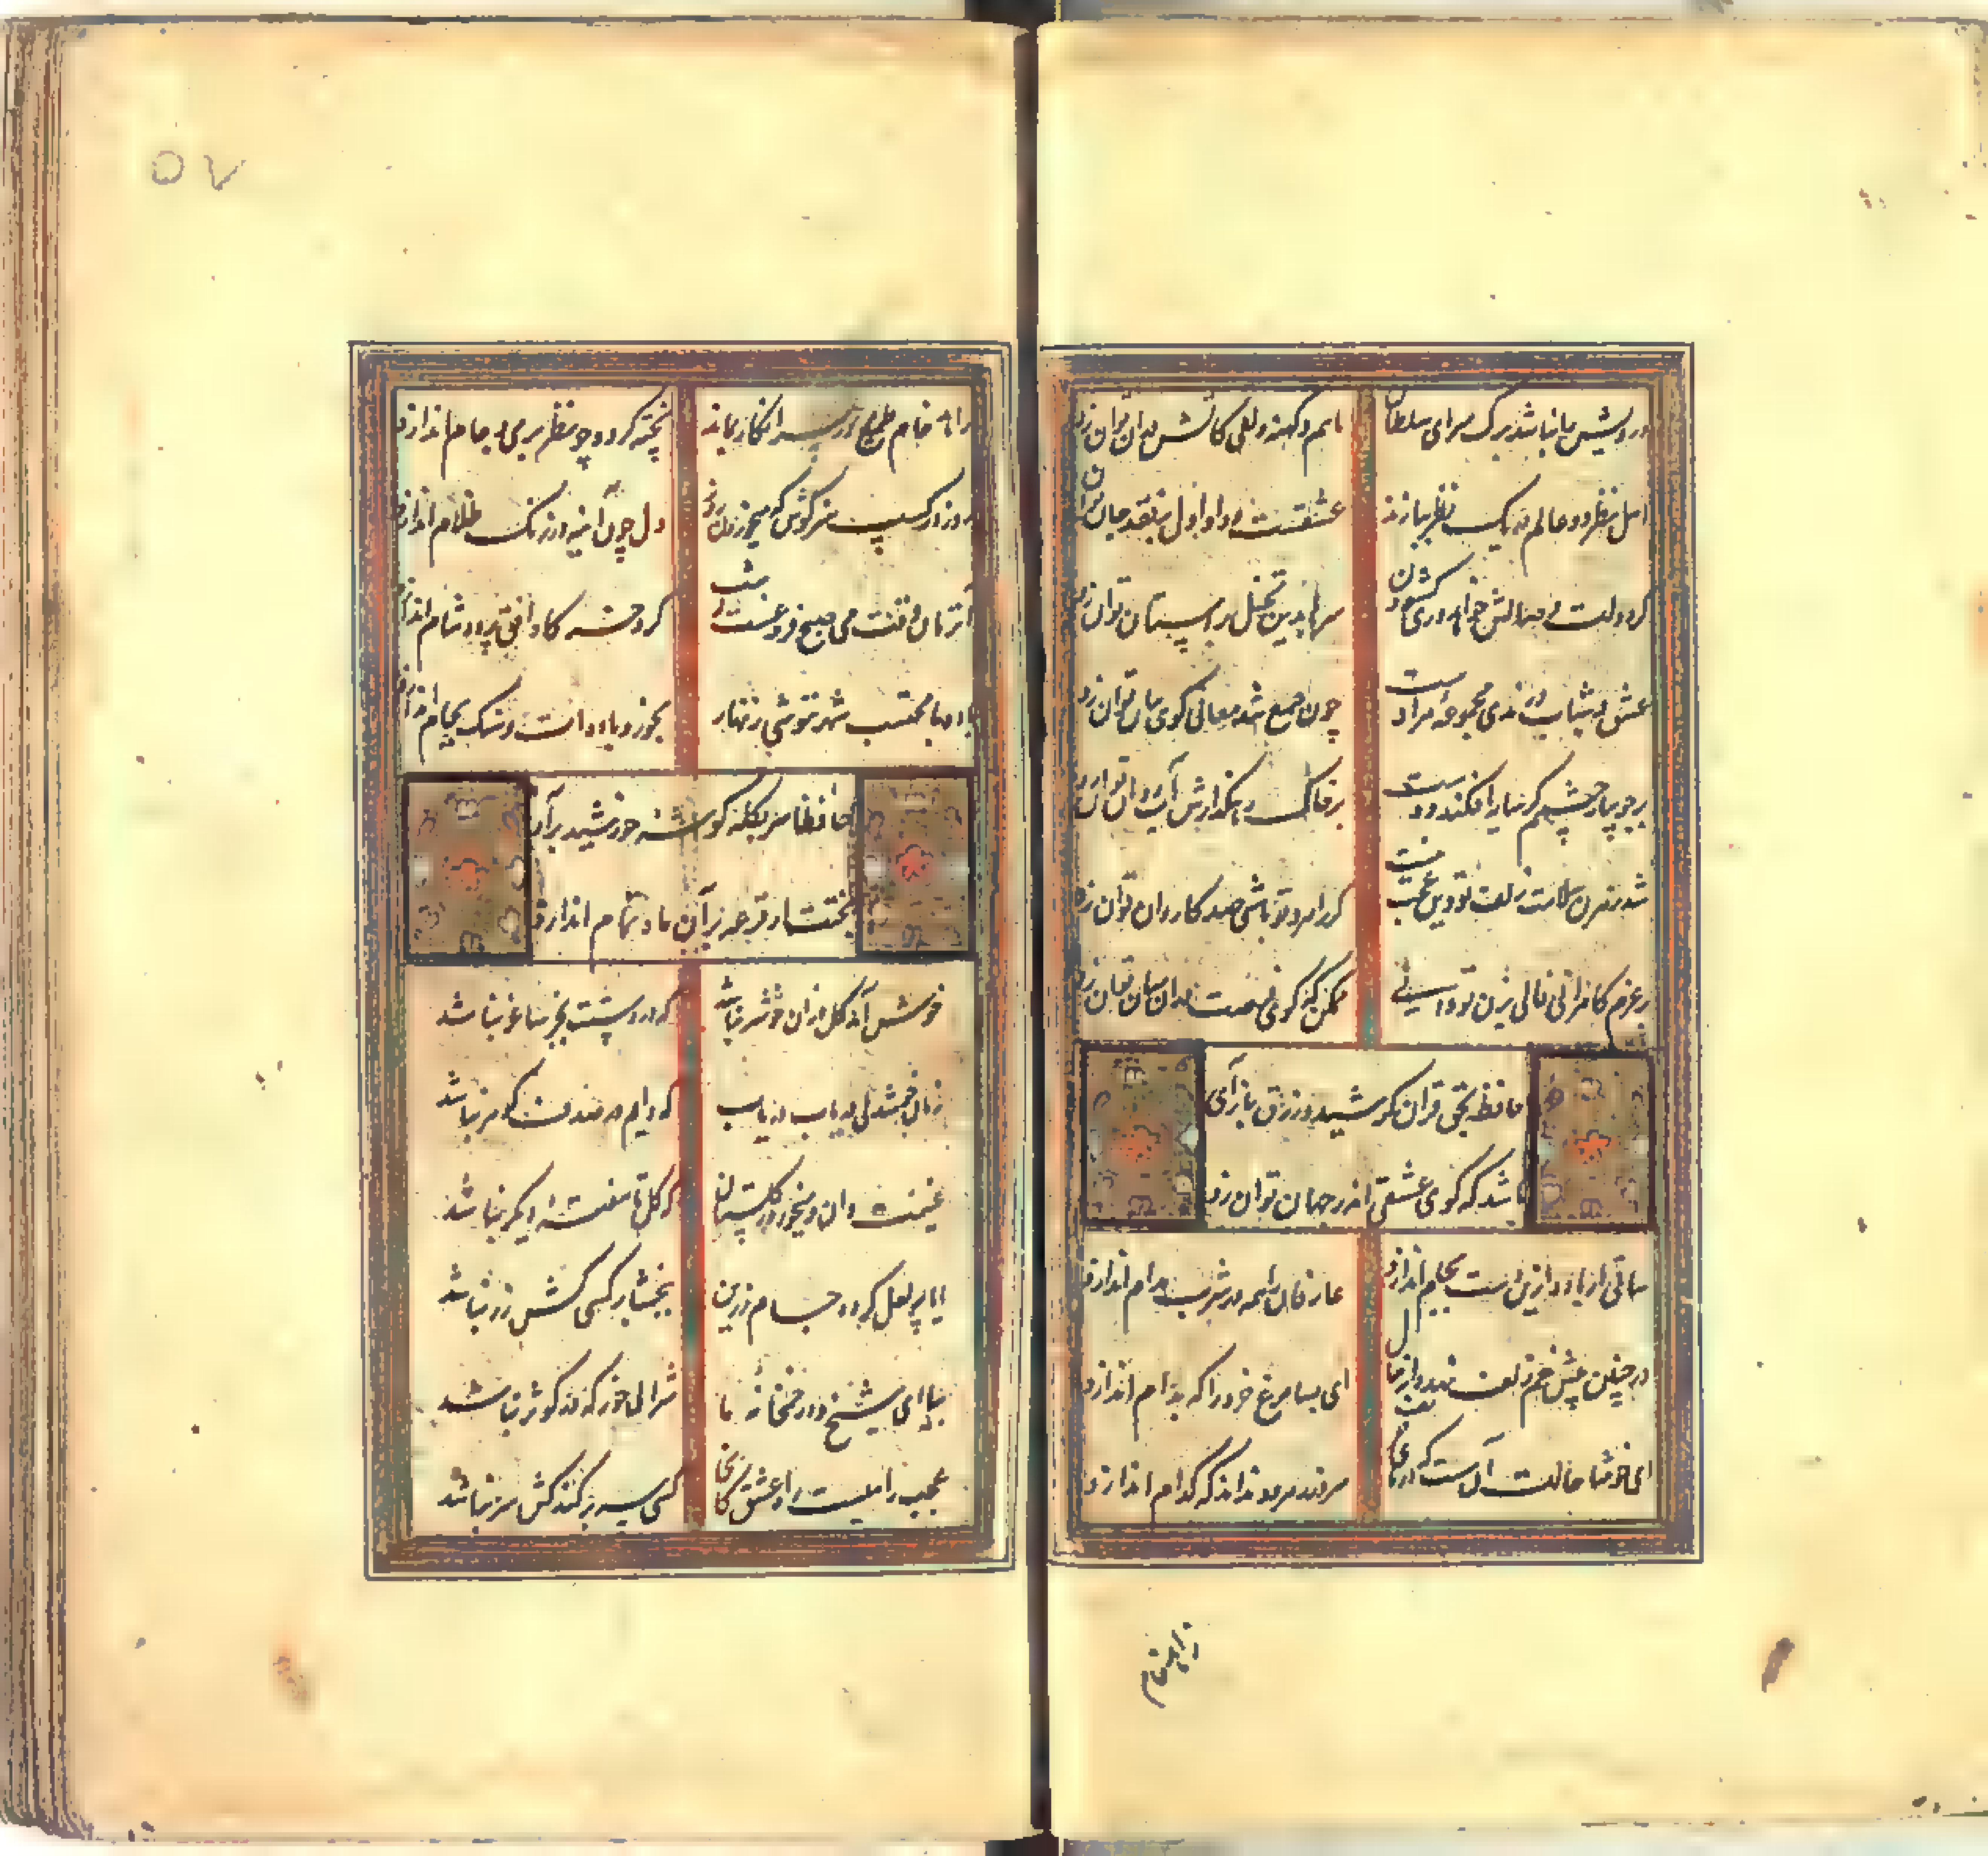 درویش را نباشد برگ سرای سلطان
مائیم و کهنه دلقی کاتش در آن توان زد
اهل نظر دو عالم در یک نظر ببازند
عشقست و داو اول بر نقد جان توان زد
گر دولت وصالش خواهد دری گشودن
سرها بدین تخیل بر آستان توان زد
عشق و شباب و رندی مجموعه مرادست
چون جمع شد معانی گوی بیان توان زد
بر جویبار چشمم گر سایه افکند دوست
بر خاک رهگذارش آب روان توان زد
شد رهزن سلامت زلف تو وین عجب نیست
گر راهرو تو باشی صد کاروان توان زد
بر عزم کامرانی فالی بزن تو دانی
ممکن که گوی فرصت در این میان توان زد
حافظ بحق قرآن کز شید و زرق باز آی
باشد که گوی عشقی اندر جهان توان زد
ساقی ار باده ازین دست بجام اندازد
عارفان را همه در شرب مدام اندازد
در چنین پیش خم زلف نهد دانه خال
ای بسا مرغ خرد را که بدام اندازد
ای خوشا حالت آن مست که در پای حریف
سر دستار نداند که کدام اندازد
زاهد خام
زاهد خام طمع بر سر انکار بماند
پخته گردد چو نظر بر می و جام اندازد
روز در کسب هنر کوش که می خوردن روز
دل چون آینه در زنگ ظلام اندازد
آنزمان وقت می صبح فروغست که شب
گرد خرگاه افق پرده شام اندازد
باده با محتسب شهر ننوشی زنهار
بخورد باده ات و سنگ بجام اندازد
حافظا سر بکله گوشه خورشید برآر
بختت ار قرعه بر آن ماه تمام اندازد
خوش آمد گل وزان خوشتر نباشد
که در دستت بجز ساغر نباشد
زمان خوشدلی دریاب دریاب
که دایم در صدف گوهر نباشد
غنیمت دان و می خور در گلستان
که گل تا هفته دیگر نباشد
ایا پر لعل کرده جام زرین
ببخشا بر کسی کش زر نباشد
بیا ای شیخ و در خمخانه ما
شرابی خور که در کوثر نباشد
عجب راهیست راه عشق کانجا
کسی سر بر کند کش سر نباشد
۵۷